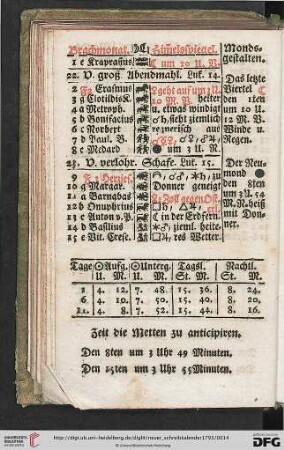 Brachmonat. Himelsspiegel. Monds-
gestalten.
1 e Kraprasius ☾ um 10 U. N.
22. V. groß Abendmahl. Luk. 14. Das letzte
2 Erasmus Viertel ☾
3 g Clotildis K. 10 M. V. heiter den 1ten
4 a Metroph. u. etwas windig um 10 U.
5 b Bonifacius ♂♄, sieht ziemlich 12 M. V.
6 c Norbert regnerisch aus Winde u.
7 d Paul. B. Regen.
8 e Medard ● um 3 U. N.
23. V. verlohr. Schafe. Luk. 15. Der Neu-
9 F 3 Herzjes. mond ●
10 g Margar. Donner geneigt den 8ten
11 a Barnabas um 3 U. 54
12 b Onuphrius M. N. heiß
13 c Anton v. P. ☾ in der Erdfern. mit Don-
14 d Basilius ziemL. heite- ner.
15 e Vit. Cresc. res Wetter.
Tage ☉Aufg. ☉Unterg. Tagsl. Nachtl.
U. M. U. M. St. M. St. M.
1 4. 12. 7. 48. 15. 36. 8. 24.
6 4. 10. 7. 50. 15. 40. 8. 20.
11. 4. 8. 7. 52. 15. 44. 8. 16.
Zeit die Metten zu anticipiren.
Den 8ten um 3 Uhr 49 Minuten.
Den 15ten um 3 Uhr 55 Minuten.
http://digi.ub.uni-heidelberg.de/diglit/neuer_schreibkalender1793/0014
© Universitätsbibliothek Heidelberg
DFG